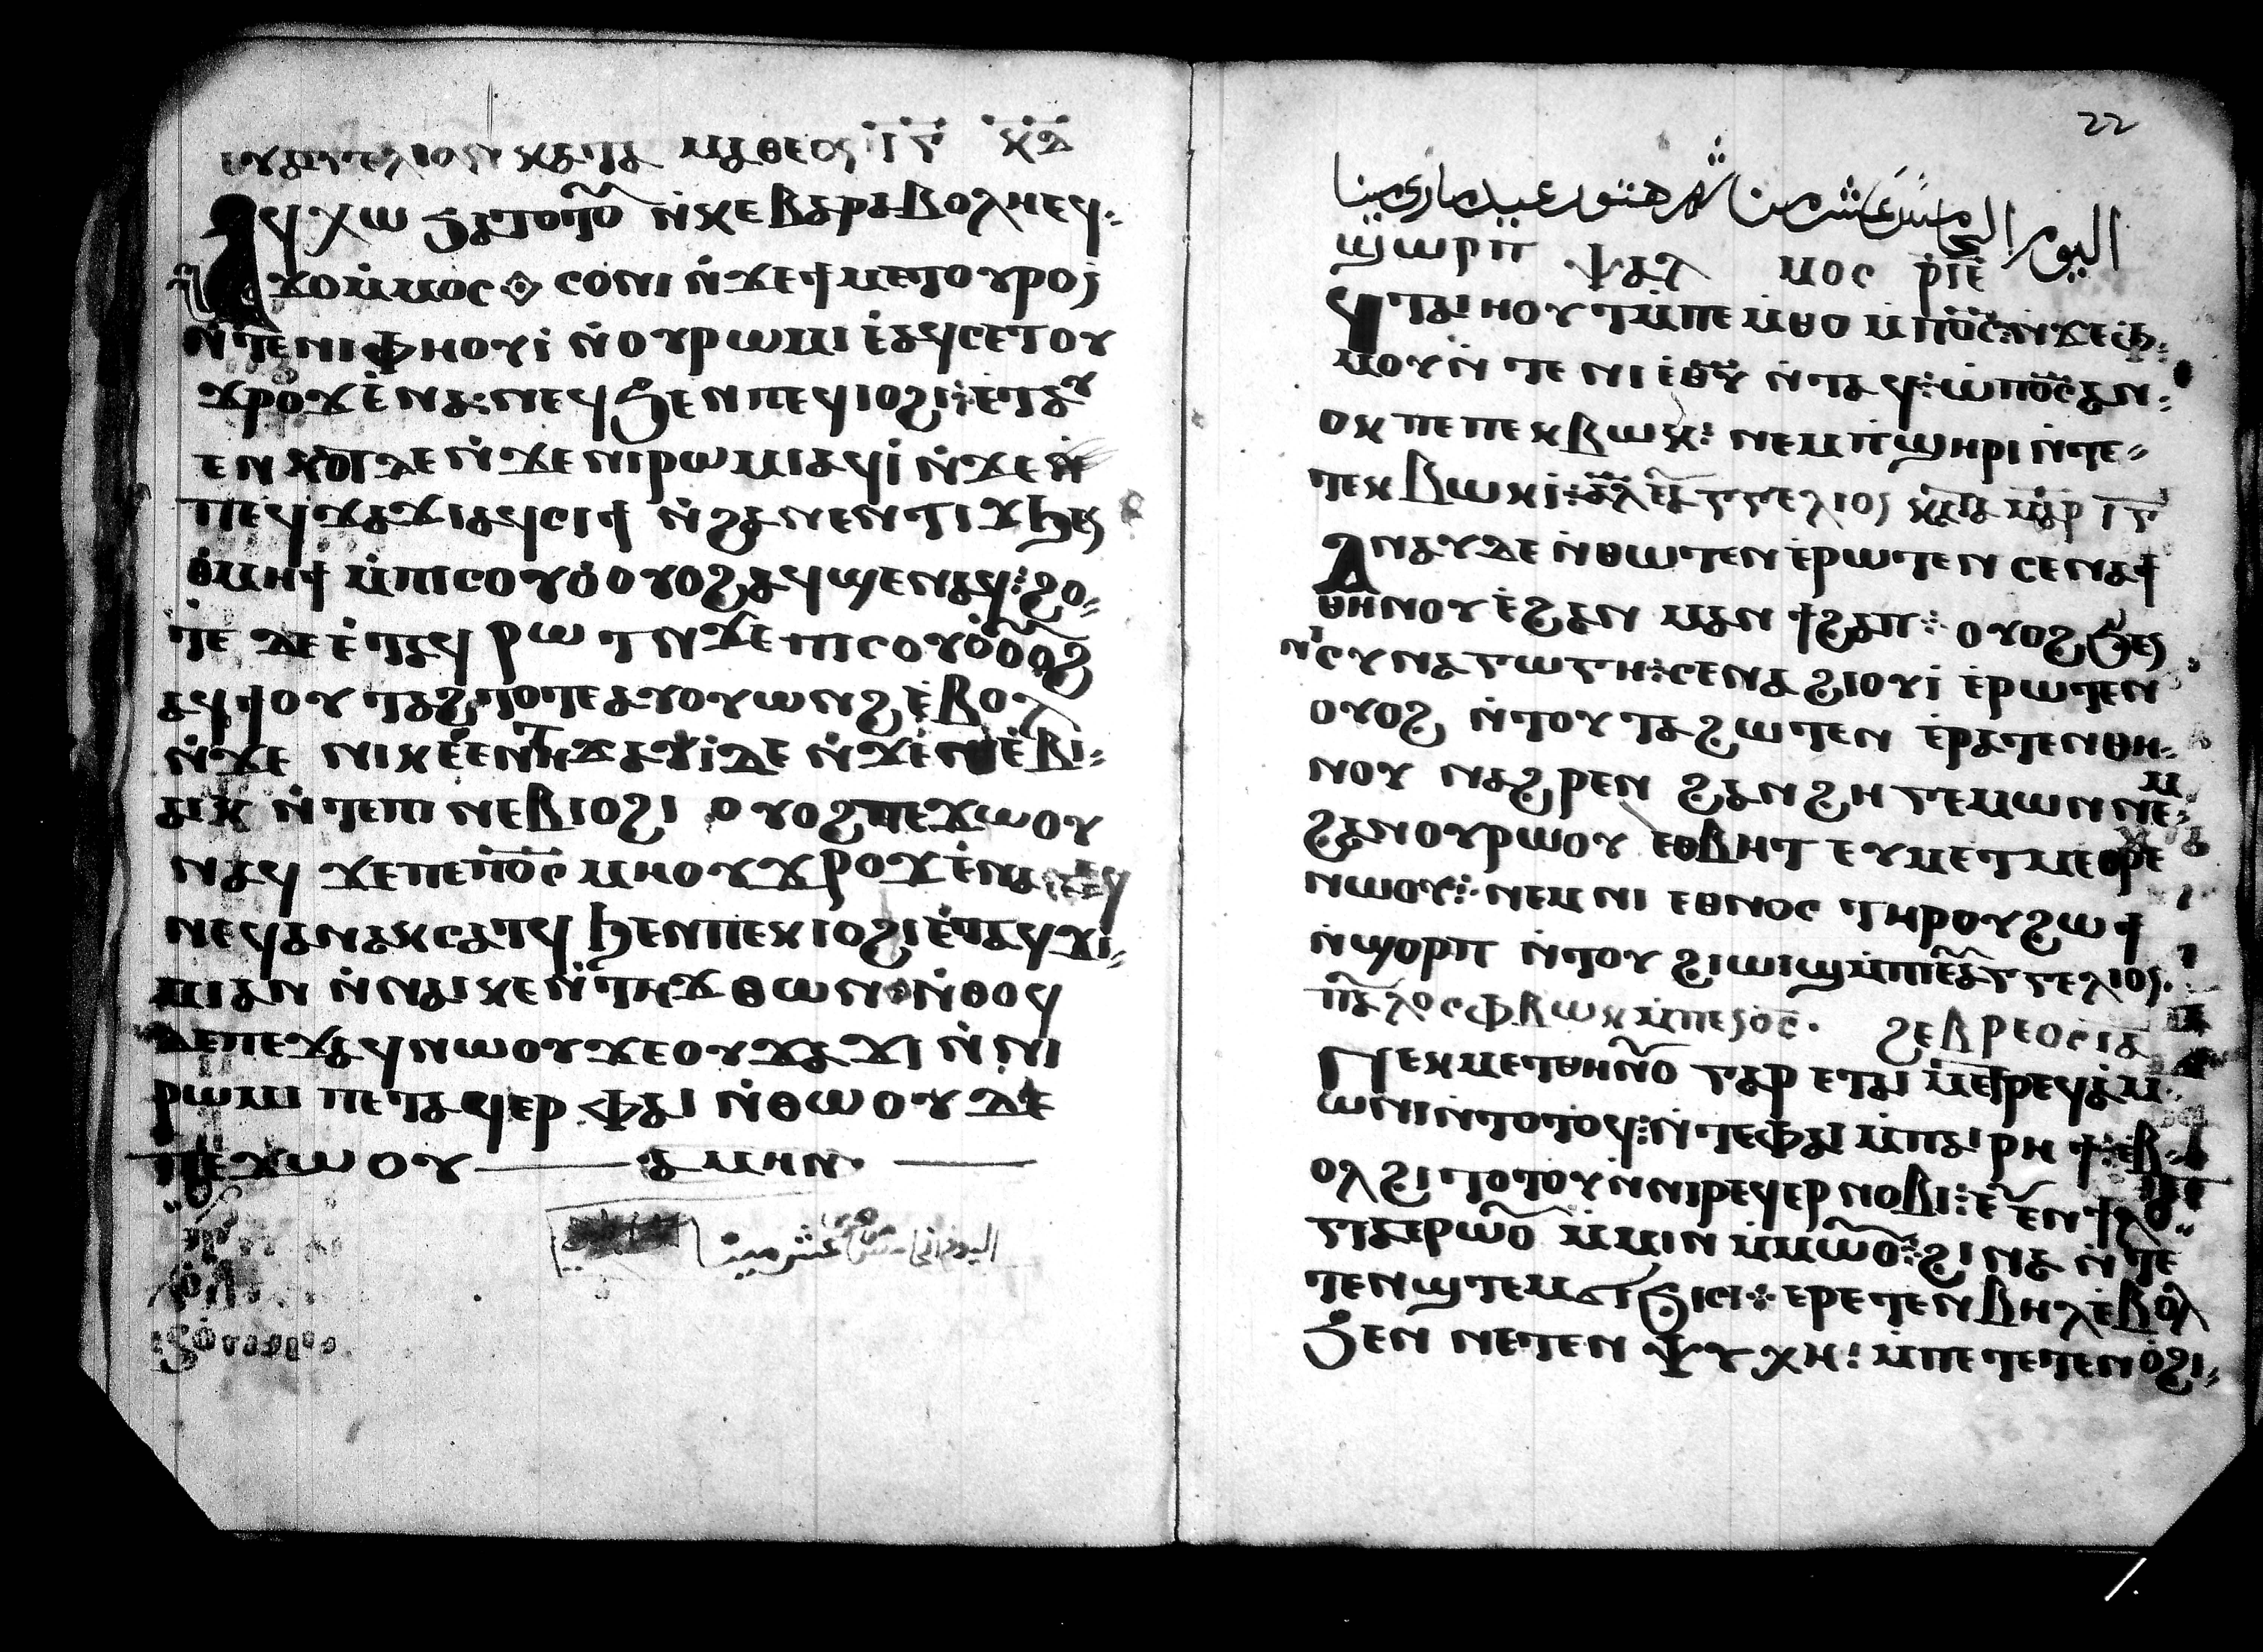 ⲉⲩⲁⲅⲅⲉⲗⲓⲟⲛ ⲕⲁⲧⲁ ⲙⲁⲑⲉⲟⲥ ⲓ̅ⲅ̅ ⲕ̅ⲇ̅
ⲁϥⲭⲱ ϧⲁⲧⲟⲧⲟ̅ ⲛ̀ⲕⲉⲃⲁⲣⲁⲃⲟⲗⲏ ⲉϥ
ϫⲟⲙ̀ⲙⲟⲥ ⲥⲟⲛⲓ ⲛ̀ϫⲉϯⲙⲉⲧⲟⲩⲣⲟ
ⲛ̀ⲧⲉⲛⲓⲫⲏⲟⲩⲓ̀ ⲛ̀ⲟⲩⲣⲱⲙⲓ ⲉ̀ⲁϥⲥⲉⲧⲟⲩ
ϫⲣⲟϫ ⲉ̀ⲛⲁⲛⲉϥ ϧⲉⲛⲡⲉϥⲓⲟϩⲓ ⲉⲧⲁⲩ
ⲉⲛⲕⲟⲧ ⲇⲉ ⲛ̀ϫⲉⲛⲓⲣⲱⲙⲓ ⲁϥⲓ̀ ⲛ̀ϫⲉ
ⲡⲉϥϫⲁϫⲓ ⲁϥⲥⲓϯ ⲛ̀ϩⲁⲛⲉⲛⲧⲓϫ ϧⲉⲛ
ⲑⲙⲏϯ ⲙ̀ⲡⲓⲥⲟⲩⲟ̀ ⲟⲩⲟϩ ⲁϥϣⲉⲛⲁϥ ϩⲟ
ⲧⲉ ⲇⲉ ⲉ̀ⲧⲁϥⲣⲱⲧ ⲛϫⲉ ⲡⲓⲥⲟⲩⲟ̀ ⲟⲟϩ
ⲁϥϯⲟⲩⲧⲁϩ ⲧⲟⲧⲉ ⲁⲩⲟⲩⲱⲛϩ ⲉ̀ⲃⲟⲗ
ⲛ̀ϫⲉ ⲛⲓⲕⲉⲉⲛⲧⲏϫ ⲁⲩⲓ̀ ⲇⲉ ⲛ̀ϫⲉⲛⲓⲉ̀ⲃⲓ
ⲁⲓⲕ ⲛ̀ⲧⲉⲡⲓⲛⲉⲃⲓⲟϩⲓ ⲟⲩⲟϩ ⲡⲉϫⲱⲟⲩ
ⲛⲁϥ ϫⲉⲡⲉⲛⲟ̅ⲥ̅ ⲙⲏⲟⲩϫⲣⲟϫ ⲉ̀ⲛⲁⲛⲉϥ
ⲛⲉϥⲁⲛⲁⲕⲥⲁⲧϥ ϧⲉⲛⲡⲉⲕⲓⲟϩⲓ ⲉ̀ⲧⲁϥϫⲓ
ⲙⲓⲁⲛ ⲛ̀ⲛⲁⲓⲕⲉⲛⲧⲏϫ ⲑⲱⲛ ⲛ̀ⲑⲟϥ
ⲇⲉⲡⲉϫⲁϥⲛⲱⲟⲩ ϫⲉⲟⲩϫⲁϫⲓ ⲛ̀ⲛⲓ
ⲣⲱⲙⲓ ⲡⲉⲧⲁϥⲉⲣ ⲫⲁⲓ ⲛ̀ⲑⲱⲟⲩ ⲇⲉ
ⲡⲉϫⲱⲟⲩ ⲁⲙⲏⲛ
اليوم الخامس عشر مينا
22
اليوم الخامس عشر من شهر هتور عيد ماري مينا
ϣⲱⲣⲡ ⲯⲁⲗⲙⲟⲥ ⲣ̅ⲓ̅ⲉ̅
ϥⲧⲁⲓⲏⲟⲩⲧ ⲙ̀ⲡⲉⲙⲑⲟ ⲙⲡⲟ̅ⲥ̅ ⲛϫⲉⲫ
ⲙⲟⲩ ⲛ̀ⲧⲉ ⲛⲓⲉⲑⲩ ⲛ̀ⲧⲁϥ ⲱⲡⲟ̅ⲥ̅ ⲁⲛ
ⲟⲕ ⲡⲉ ⲡⲉⲕⲃⲱⲕ ⲛⲉⲙⲡϣⲏⲣⲓ ⲛ̀ⲧⲉ
ⲧⲉⲕⲃⲱⲕⲓ ⲁⲗ ⲉⲩⲁⲅⲅⲉⲗⲓⲟⲥ ⲕⲁⲧⲁ ⲙⲁⲣ ⲓ̅ⲅ̅
ⲁⲛⲁⲩ ⲇⲉ ⲛ̀ⲑⲱⲧⲉⲛ ⲉ̀ⲣⲱⲧⲉⲛ ⲥⲉⲛⲁϯ
ⲑⲏⲛⲟⲩ ⲉ̀ϩⲁⲛ ⲙⲁⲛϯϩⲁⲡ ⲟⲩⲟϩ ϧⲉⲛ
ⲛⲥⲩⲛⲁⲅⲱⲅⲏ ⲥⲉⲛⲁϩⲓⲟⲩⲓ̀ ⲉ̀ⲣⲱⲧⲉⲛ
ⲟⲩⲟϩ ⲛ̀ⲧⲟⲩⲧⲁϩⲱⲧⲉⲛ ⲉ̀ⲣⲁⲧⲉⲛⲑⲏ
ⲛⲟⲩ ⲛⲁϩⲣⲉⲛ ϩⲁⲛϩⲏⲅⲉⲙⲱⲛ ⲛⲉⲙ
ϩⲁⲛⲟⲩⲣⲱⲟⲩ ⲉⲑⲃⲏⲧ ⲉⲩⲙⲉⲧⲙⲉⲑⲣⲉ
ⲛⲱⲟⲩ ⲛⲉⲙ ⲛⲓ ⲉⲑⲛⲟⲥ ⲧⲏⲣⲟⲩ ϩⲱϯ
ⲛ̀ϣⲟⲣⲡ ⲛ̀ⲧⲟⲩϩⲓⲱⲓϣ ⲙ̀ⲡⲓⲉⲩⲁⲅⲅⲉⲗⲓⲟⲥ
ⲡⲁⲩⲗⲟⲥ ⲫⲃⲱⲕ ⲙ̀ⲡⲉⲛⲟ̅ⲥ̅ ϩⲉⲃⲣⲉⲟⲥ ⲓ̅ⲁ̅
ⲡⲉⲕⲙⲉⲧⲑⲏⲛⲟ ⲅⲁⲣ ⲉⲧⲁⲓ ⲙⲉⲧⲣⲉϥⲁⲙ
ⲱⲛⲓⲛ̀ⲧⲟⲧⲟϥ ⲛ̀ⲧⲉⲫⲁⲓ ⲙ̀ⲡⲁⲓⲣⲏϯ ⲉ̀ⲃ
ⲟⲗϩⲓⲧⲟⲧⲟⲩ ⲛⲛⲓⲣⲉϥⲉⲣⲛⲟⲃⲓ ⲉϧⲟⲩⲛ ⲉⲛϯⲗⲟ
ⲅⲓⲁ ⲉⲣⲱⲟ̅ ⲙ̀ⲙⲓⲛ ⲙ̀ⲙⲱⲟ̅ ϩⲓⲛⲁ ⲛ̀ⲧⲉ
ⲧⲉⲛϣⲧⲉⲙϭⲓϧⲓⲥⲓ ⲉⲣⲉⲧⲉⲛⲃⲏⲗ ⲉ̀ⲃⲟⲗ
ϧⲉⲛ ⲛⲉⲧⲉⲛⲯⲩⲭⲏ ⲙ̀ⲡⲉⲧⲉⲧⲉⲛⲟ̀ϩⲓ